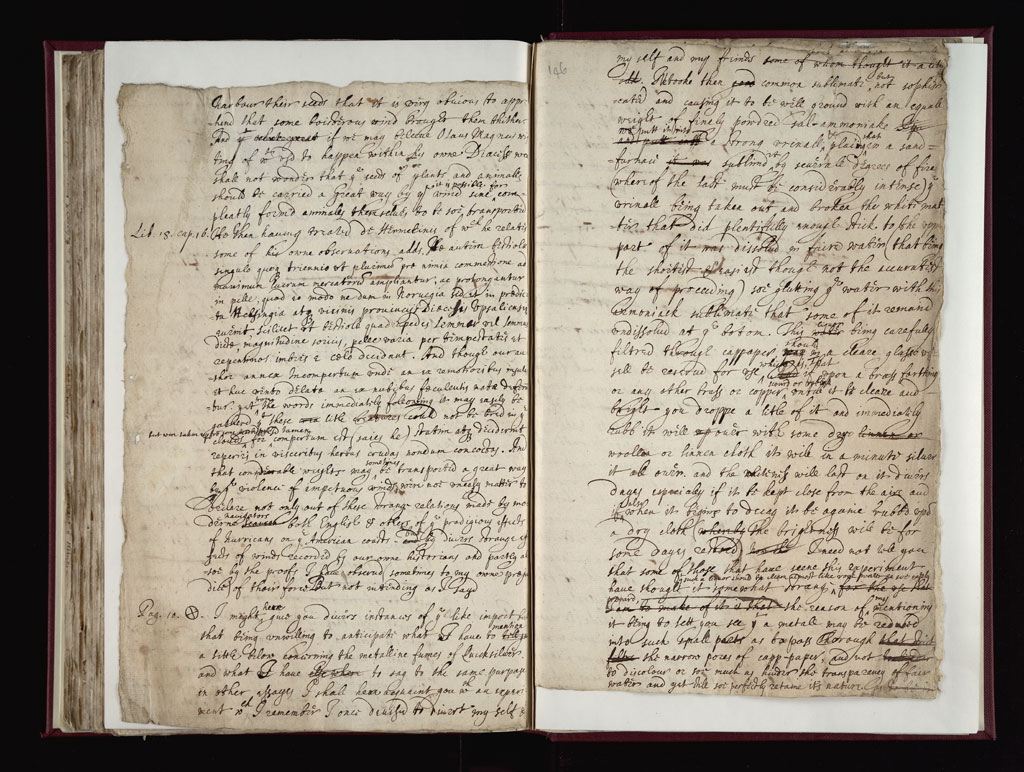 harbour their seeds that it is very obvious to appre
hend that some boisterous wind brought them thither.
And if we may beleeve Olaus Magnus wri
ting of wt usd to happen within his owne Diacess we
shall not wonder that ye seeds of plants and animalls
should be carried a great way by ye wind since com
pleatly form'd animals themselves to be soe transported
Lib. 18. cap. 16. He then having treated de Hermelinis of wch he relates
some of his owne observations adds, autem bestiolæ
singulo quoq triennio vt plurimum præ nimia commestione ad
maximum lucrum mercatorum ampliantur, ac prolongantur
in pelle, quod eo modo nedum in Noruegia sed et in prædic
ta Helsingia atq vicinis prouincijs Diacesis Vpsalicensis
euenit scilicet vt bestiolæ quadrupedes Lemmar vel Lemmus
dictæ magnitudine soricis, pelle varia per tempestates et
repentinos imbres e cælo decidant. And though our au
thor annex Incompertum vnde an ex remotioribus insulis
et huc vento delatæ an ex nubibus fæculentis natæ deferan
tur. yet the words immediatly following it may easily be
gather'd yt these litle could not be bred in ye
clouds for compertum est (saies he) statim atq deciderint
reperiri in visceribus herbas crudas nondum concoctas. And
that wieghts may be sometimes transported a great way
by ye violence of impetuous winds were not uneasy matter to
declare not only out of those strange relations made by mo
derne navigators both English & others of ye prodigious effects
of hurricans on ye American coasts but by divers strange ef
fects of winds recorded by our owne historians and partly al
soe by the proofs I have observ'd sometimes to my owne preju
dice of their force. But not intending as I sayd
Pag. 10. I might here give you divers instances of ye like import but
that being unwilling to anticipate what I have to mention
a little below concerning the metalline fumes of Quicksilver.
and what I have to say to the same purpose
in other assayes I shall here acquaint you wth an experi
ment wch I remember I once devised to divert my self &
146
my self and my frinds some of whom thought it a litle
odd. I tooke then common sublimate, but not sophisti
cated and causing it to be well ground with an equall
weight of finely powdred sal-ammoniake
we putt it into a strong urinall, & placing that in a sand-
furnace it was sublimd by severall degrees of fire
(whereof the last must be considerably intense) ye
urinall being taken out and broken the white mat
ter that did plentifully enough stick to the upper
part of it was dissolvd in faire water (that being
the shortest & easiest though not the accuratest
way of proceeding) soe glutting ye water with this
ammoniack sublimate that some of it remaind
undissolvd at ye botom. This being carefully
filtred through cappaper should in a cleane glasse ves
sell be reserved for use it upon a brass farthing
or any other brass or copper, once it be cleane and
bright you droppe a litle of it and immediately
rubb it well over with some drye linnen or
woollen or linnen cloth it will in a minute silver
it all over. and the whiteness will last on it divers
dayes especially if it be kept close from the aire and
if when it begins to decay it be againe rubbd with
a dry cloth (whereby the brightness will be for
some dayes restored I need not tell you
that some of those that have seene this experiment
have thought it somewhat strange for the use that
I am to make of it is that the reason of my mentioning
it being to lett you see yt a metall may be reduced
into such small parts as to pass thorough
the narrow pores of capp-paper, and not
to discolour or soe much as hinder the transparency of faire
water and yet still soe perfectly retaine its nature.